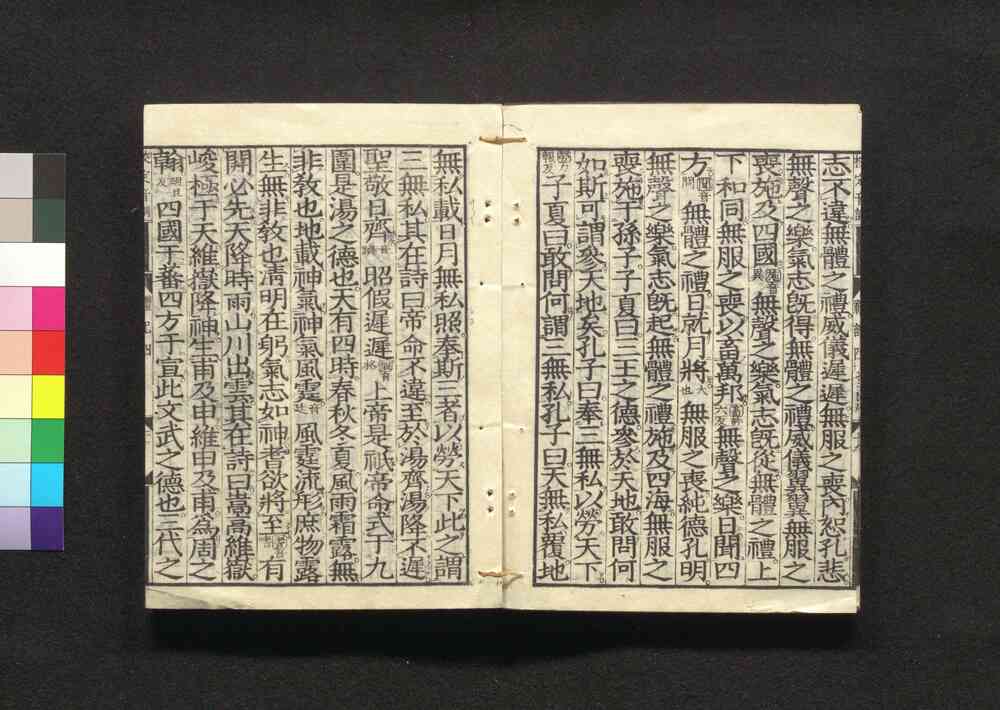 志不違無體之禮威儀遲遲無服之喪内恕孔悲
無聲之樂氣志既得無體之禮威儀翼翼無服之
喪施及四國無聲之樂氣志既從無體之禮上
下和同無服之喪以畜萬邦無聲之樂日聞四
方無體之禮日就月將無服之喪純德孔明
無聲之樂氣志既起無體之禮施及四海無服之
喪施于孫子子夏曰三王之德參於天地敢問何
如斯可謂參天地矣孔子曰奉三無私以勞天下
子夏曰敢問何謂三無私孔子曰天無私覆地
無私載日月無私照奉斯三者以勞天下此之謂
三無私其在詩曰帝命不違至於湯齊湯降不遲
聖敬日齊昭假遲遲上帝是祗帝命式于九
圍是湯之德也天有四時春秋冬夏風雨霜露無
非教也地載神氣神氣風霆風霆流形庶物露
生無非教也淸明在躬氣志如神耆欲將至有
開必先天降時雨山川出雲其在詩曰嵩高維嶽
峻極于天維嶽降神生甫及申維申及甫爲周之
翰四國于蕃四方于宣此文武之德也三代之